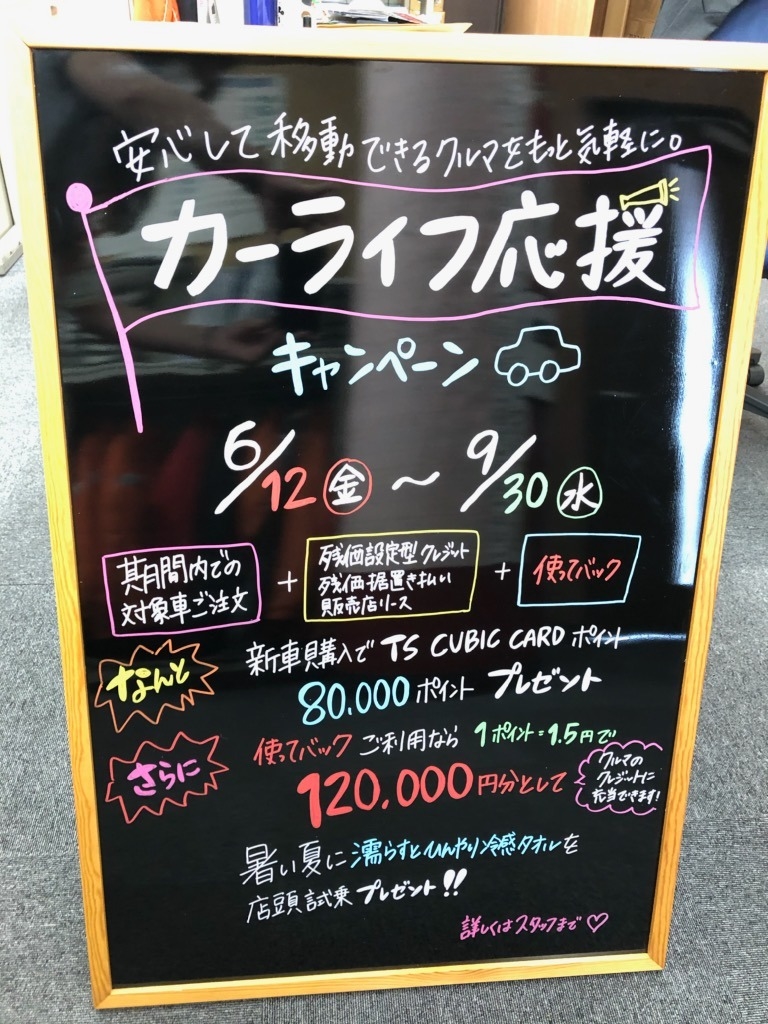 安心して移動できるクルマをもっと気軽に。
カーライフ応援
キャンペーン
6/12㊎～9/30㊌
期間内での
対象車ご注文
+
残価設定型クレジット
残価据置き払い
販売店リース
+
使ってバック
なんと
新車購入でTS CUBIC CARDポイント
80.000ポイントプレゼント
さらに
使ってバックご利用なら 1ポイント=1.5円で
120.000円分として
クルマの
クレジットに
充当できます!
暑い夏に濡らすとひんやり冷感タオルを
店頭試乗プレゼント!!
詳しくはスタッフまで♡